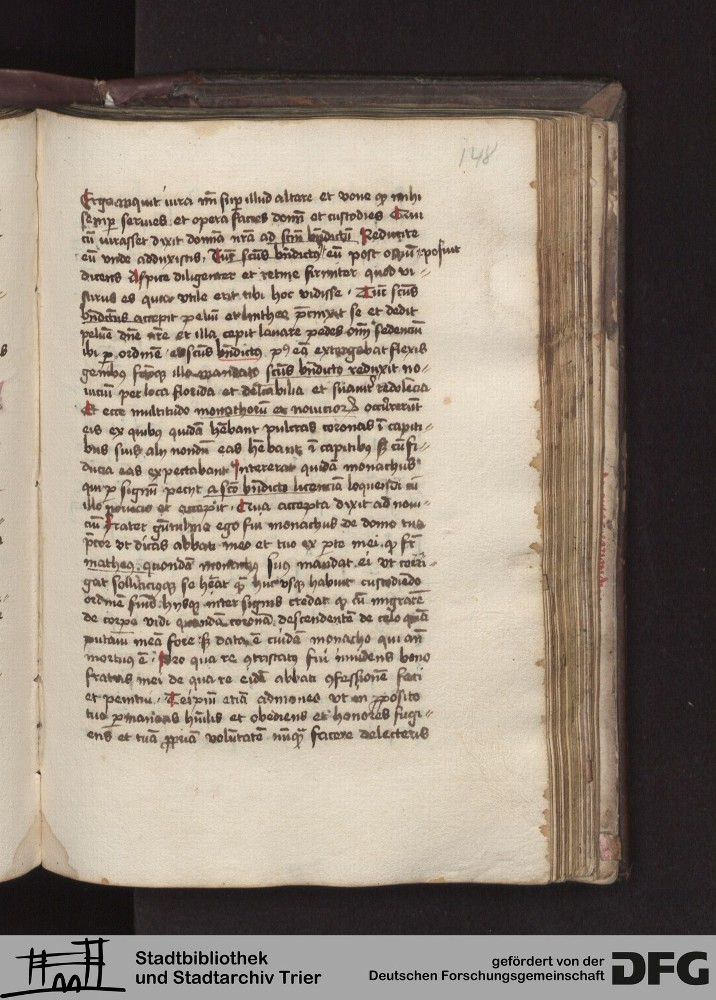 148
Ergo inquit iura m̄ sup̄ illud altare et voue qͥ mihi
semp̄ seruies et opera facies domꝰ et custodies Qui
cū iurasset dixit domina nr̄a ad sctm̄ bn̄dictū Reducite
eū vnde adduxistis. Tūc sctūs bn̄dictꝰ eū post posuit
dicens Aspice diligenter et retine firmiter quod vi⸗
surus es quia vtile erit tibi hoc vidisse. Tūc sctūs
bn̄dictus accepit peluī et lintheā p̄cinxit se et dedit
peluē dn̄e nr̄e et illa cepit lauare pedes om̄ sedenciū
ibi p̄ ordinē et sctūs bn̄dictꝰ pꝰ eā extergebat flexis
genibꝰ illo mandato sctūs bn̄dictꝰ reduxit no⸗
uiciū per loca florida et delc̄abilia et suauiter redolēcia
Et ecce multitudo monachorū et nouiciorꝝ occurrerūt
eis ex quibꝰ quidā hēbant pulcras coronas ī capiti⸗
bus suis alij nondū eas hēbant ī capitibꝰ sꝫ cū fi⸗
ducia eas expectabant Intererat quidā monachus
qui p̄ signū peciit a sctō bn̄dicto licenciā loquendi cū
illo nouicio et accepit. Qua accepta dixit ad noui⸗
ciū frater ego fui monachus de domo tua
p̄cor vt dicas abbati meo et tuo ex p̄te mei qꝫ fr̄
matheꝰ quondā monachꝰ suꝰ mandat ei vt corri⸗
gat sollicicius se hēat qꝫ huc vsqꝫ habuit custodiēdo
ordinē suū hijsqꝫ inter signis credat qꝫ cū migrarē
de corpe vidi quandā coronā descendentē de celo quā
putaui meā fore sꝫ data ē cuidā monacho qui an̄
mortuꝰ ē. Pro qua re ꝯtristatꝰ fui inuidens bono
fratris mei de qua re eidē abbati ꝯfessionē feci
et penitui. Teip̄m etiā admoneo vt in p̄posito
tuo p̄maneas hūilis et obediens et honores fugi⸗
ens et tuā ꝓpriā volūtatē nūqꝫ facere delecteris
Stadtbibliothek
und Stadtarchiv Trier
gefördert von der
Deutschen Forschungsgemeinschaft
DFG